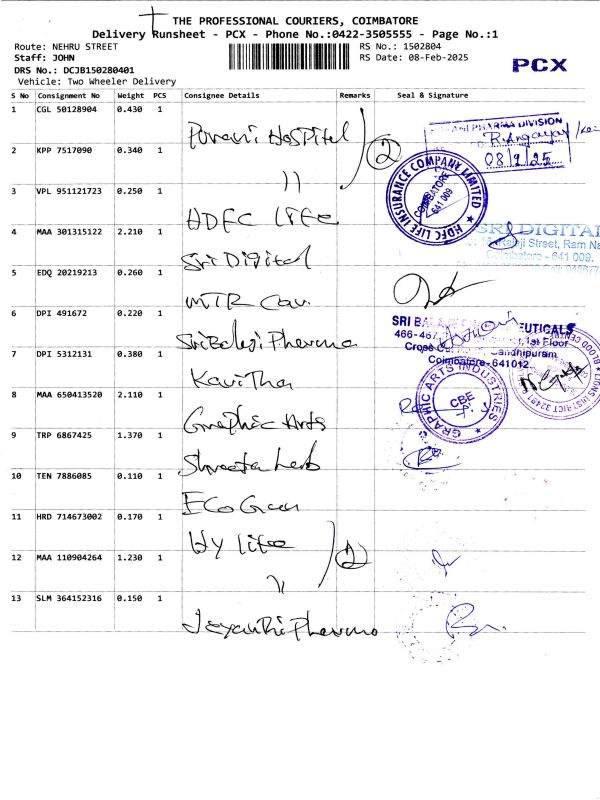 THE PROFESSIONAL COURIERS, COIMBATORE
Delivery Runsheet - PCX - Phone No.:0422-3505555 - Page No.:1
Route: NEHRU STREET
RS No.: 1502804
Staff: JOHN
RS Date: 08-Feb-2025
DRS No.: DCJB150280401
PCX
Vehicle: Two Wheeler Delivery
S No Consignment No Weight PCS Consignee Details Remarks Seal & Signature
1 CGL 50128904 0.430 1 Hospital
2 KPP 7517090 0.340 1 〃 2
PHARMA DIVISION
08/2/25
3 VPL 951121723 0.250 1 HDFC Life
HDFC LIFE INSURANCE COMPANY LIMITED
COIMBATORE
641 009
4 MAA 301315122 2.210 1 Sri Digital
SRI DIGITAL
Street, Ram Na
Coimbatore - 641 009.
5 EDQ 20219213 0.260 1 MTR
6 DPI 491672 0.220 1 Sri Balaji Pharma
SRI BALA
EUTICALS
466-467
1st Floor
Cross
Gandhipuram
Coimbatore-641012.
7 DPI 5312131 0.380 1 Kavitha
LIONS DISTRICT 324B1
BLOOD CENTRE
8 MAA 650413520 2.110 1 Graphic Arts
GRAPHIC ARTS INDUSTRIES
CBE
9 TRP 6867425 1.370 1
10 TEN 7886085 0.110 1 Eco Green
11 HRD 714673002 0.170 1 Life
12 MAA 110904264 1.230 1 〃 2
13 SLM 364152316 0.150 1 Jeyanthi Pharma